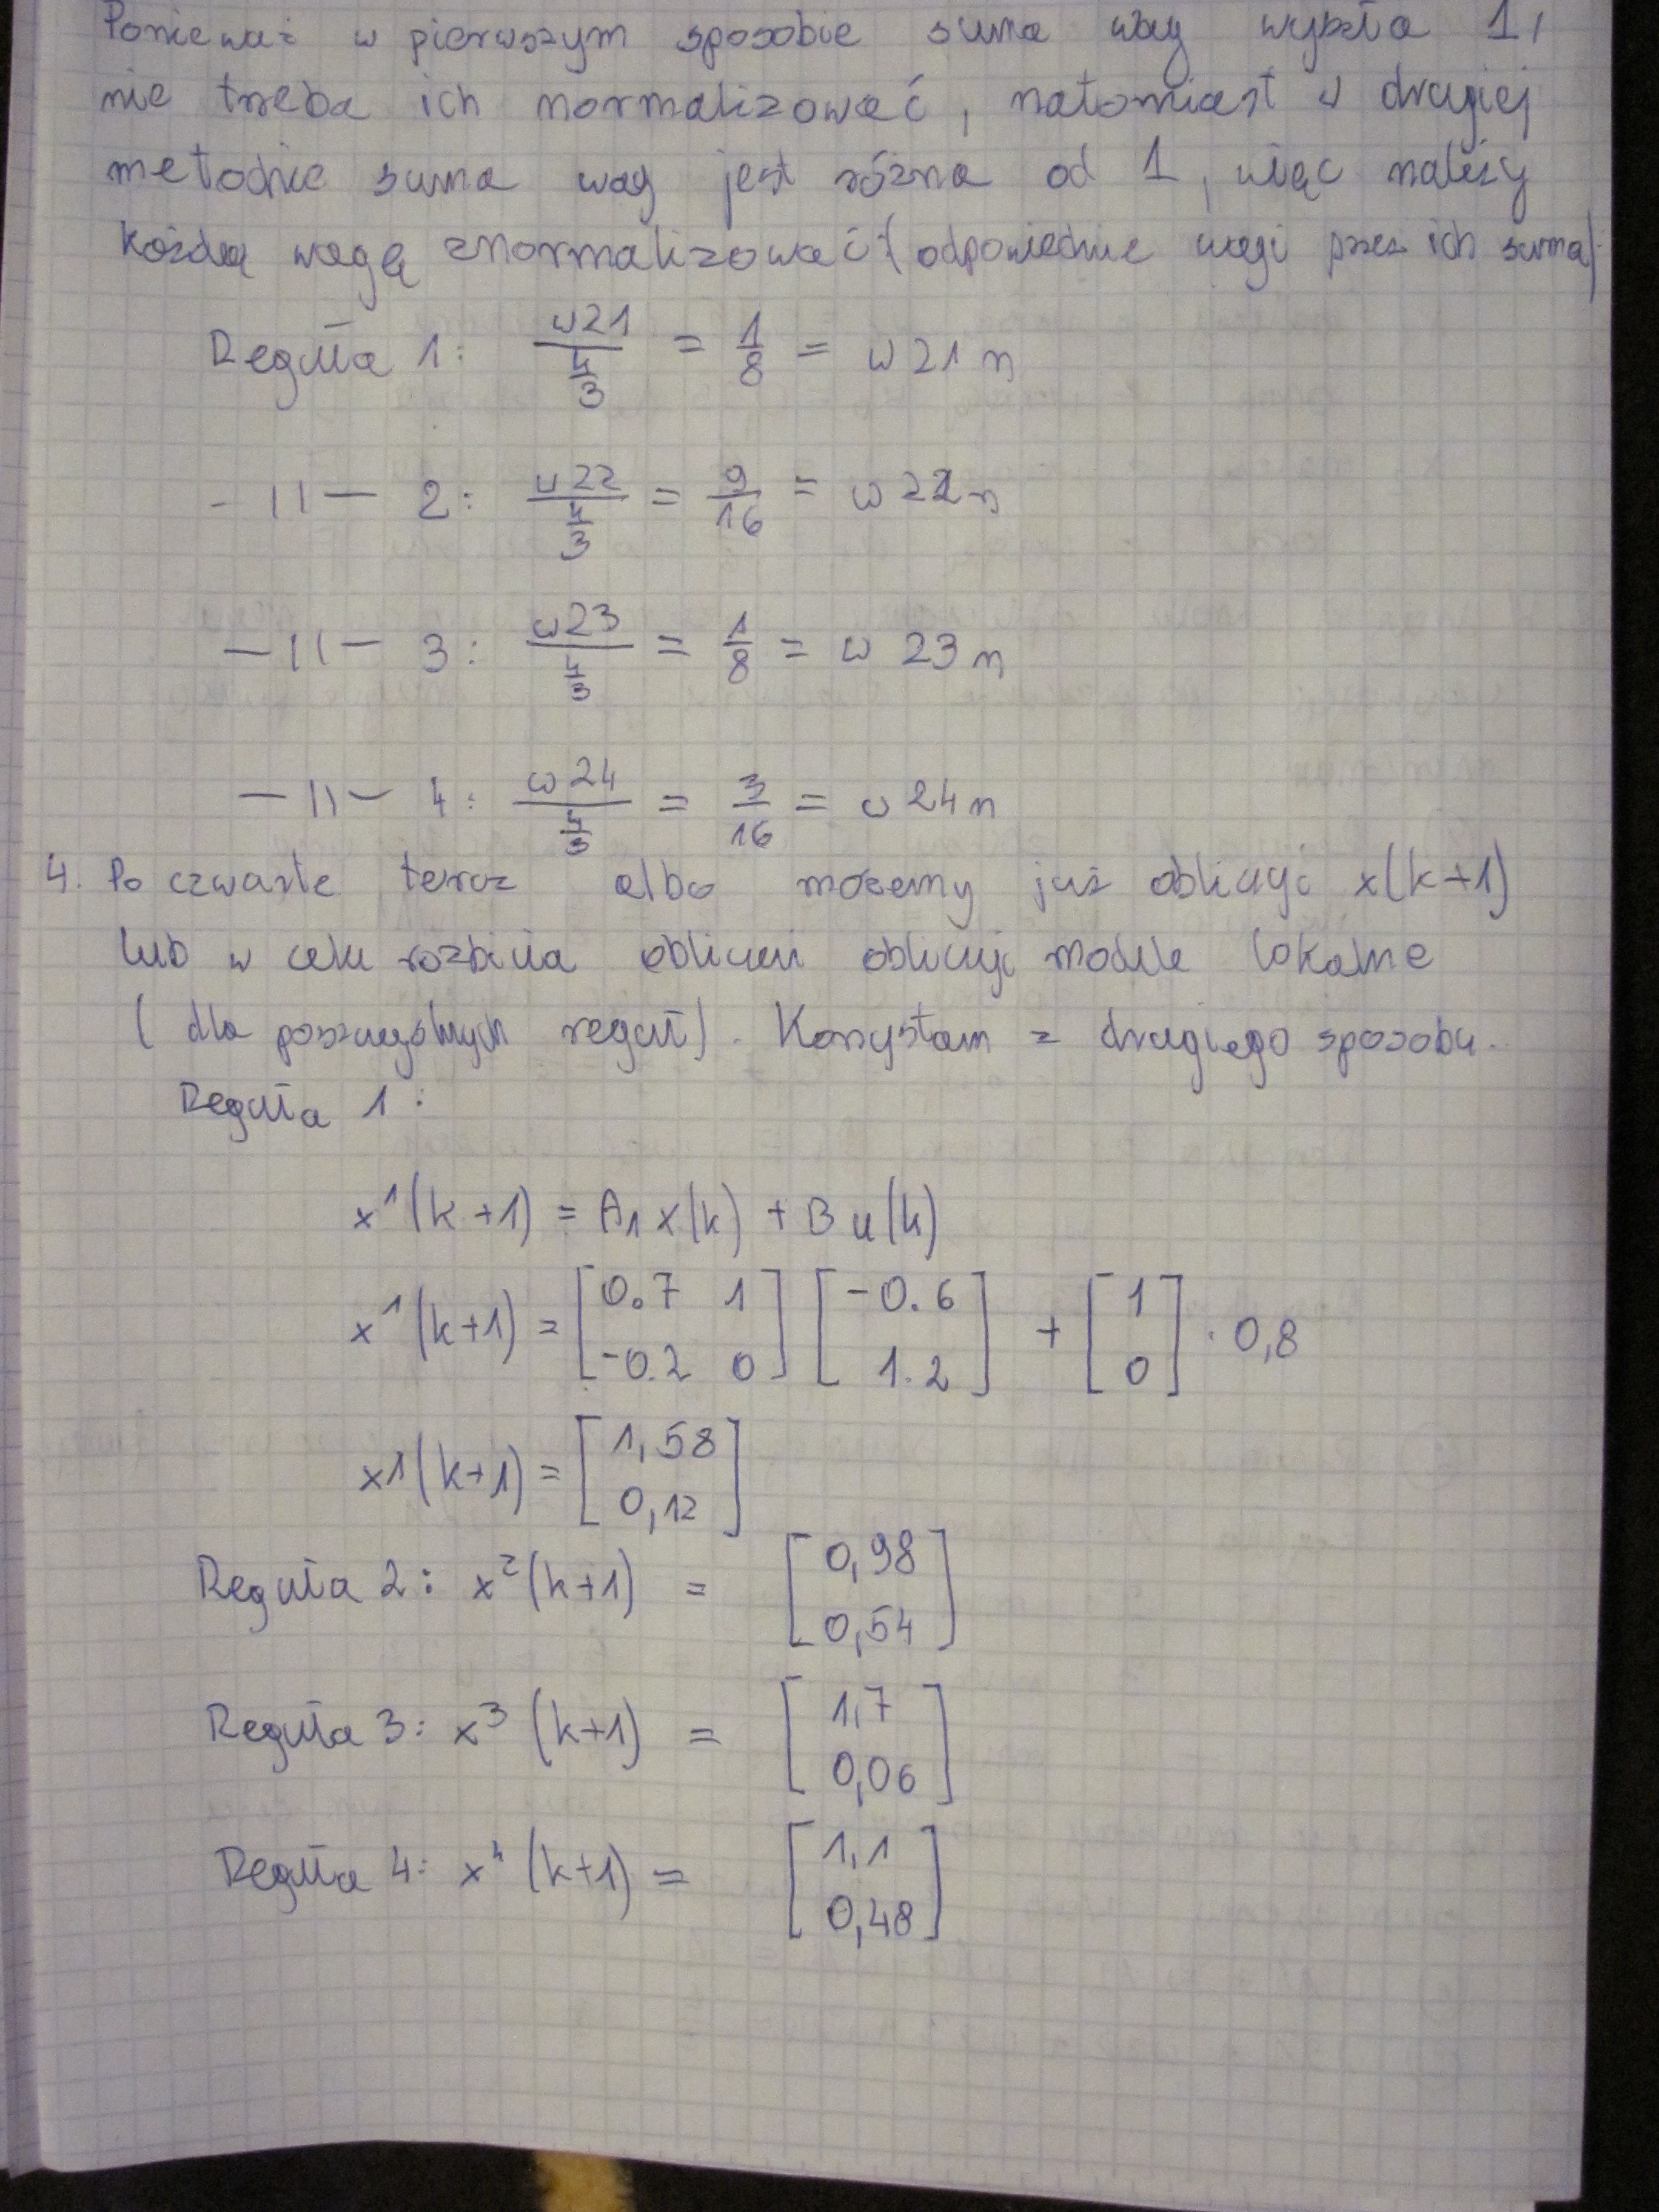 Ponieważ w pierwszym sposobie suma wag wyszła 1,
nie trzeba ich normalizować, natomiast w drugiej
metodzie suma wag jest różna od 1, więc należy
każdą wagę znormalizować (odpowiednie wagi przez ich sumę)
Reguła 1: w21/(4/3) = 1/8 = w21n
-11- 2: w22/(4/3) = 9/16 = w22n
-11- 3: w23/(4/3) = 1/8 = w23n
-11- 4: w24/(4/3) = 3/16 = w24n
4. Po czwarte teraz albo możemy już obliczyć x(k+1)
lub w celu rozbicia obliczeń obliczyć modele lokalne
(dla poszczególnych reguł). Korzystam z drugiego sposobu.
Reguła 1:
x¹(k+1) = A₁x(k) + Bu(k)
x¹(k+1) = [0.7 1; -0.2 0] [-0.6; 1.2] + [1; 0] · 0,8
x1(k+1) = [1,58; 0,12]
Reguła 2: x²(k+1) = [0,98; 0,54]
Reguła 3: x³(k+1) = [1,7; 0,06]
Reguła 4: x⁴(k+1) = [1,1; 0,48]